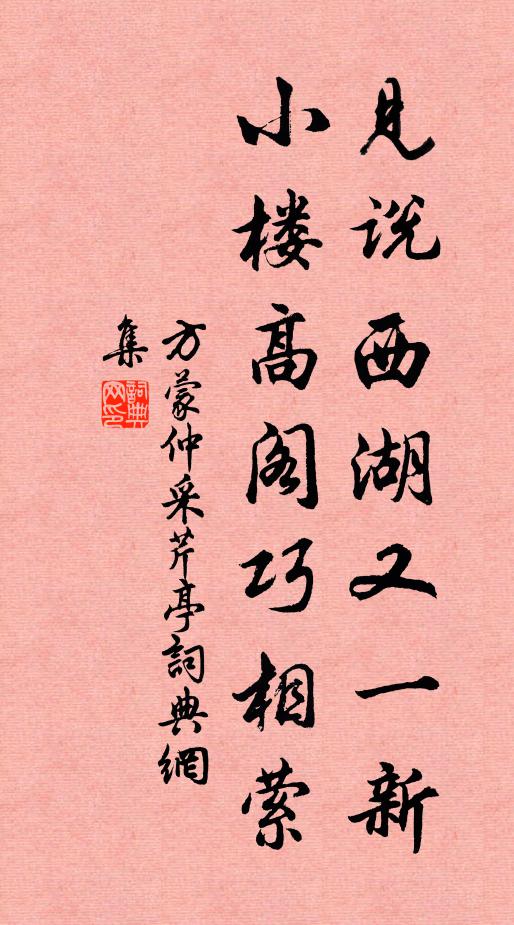 见说西湖又一新
小楼高阁巧相萦
方蒙仲采芹亭詞典網
集
詞典网印